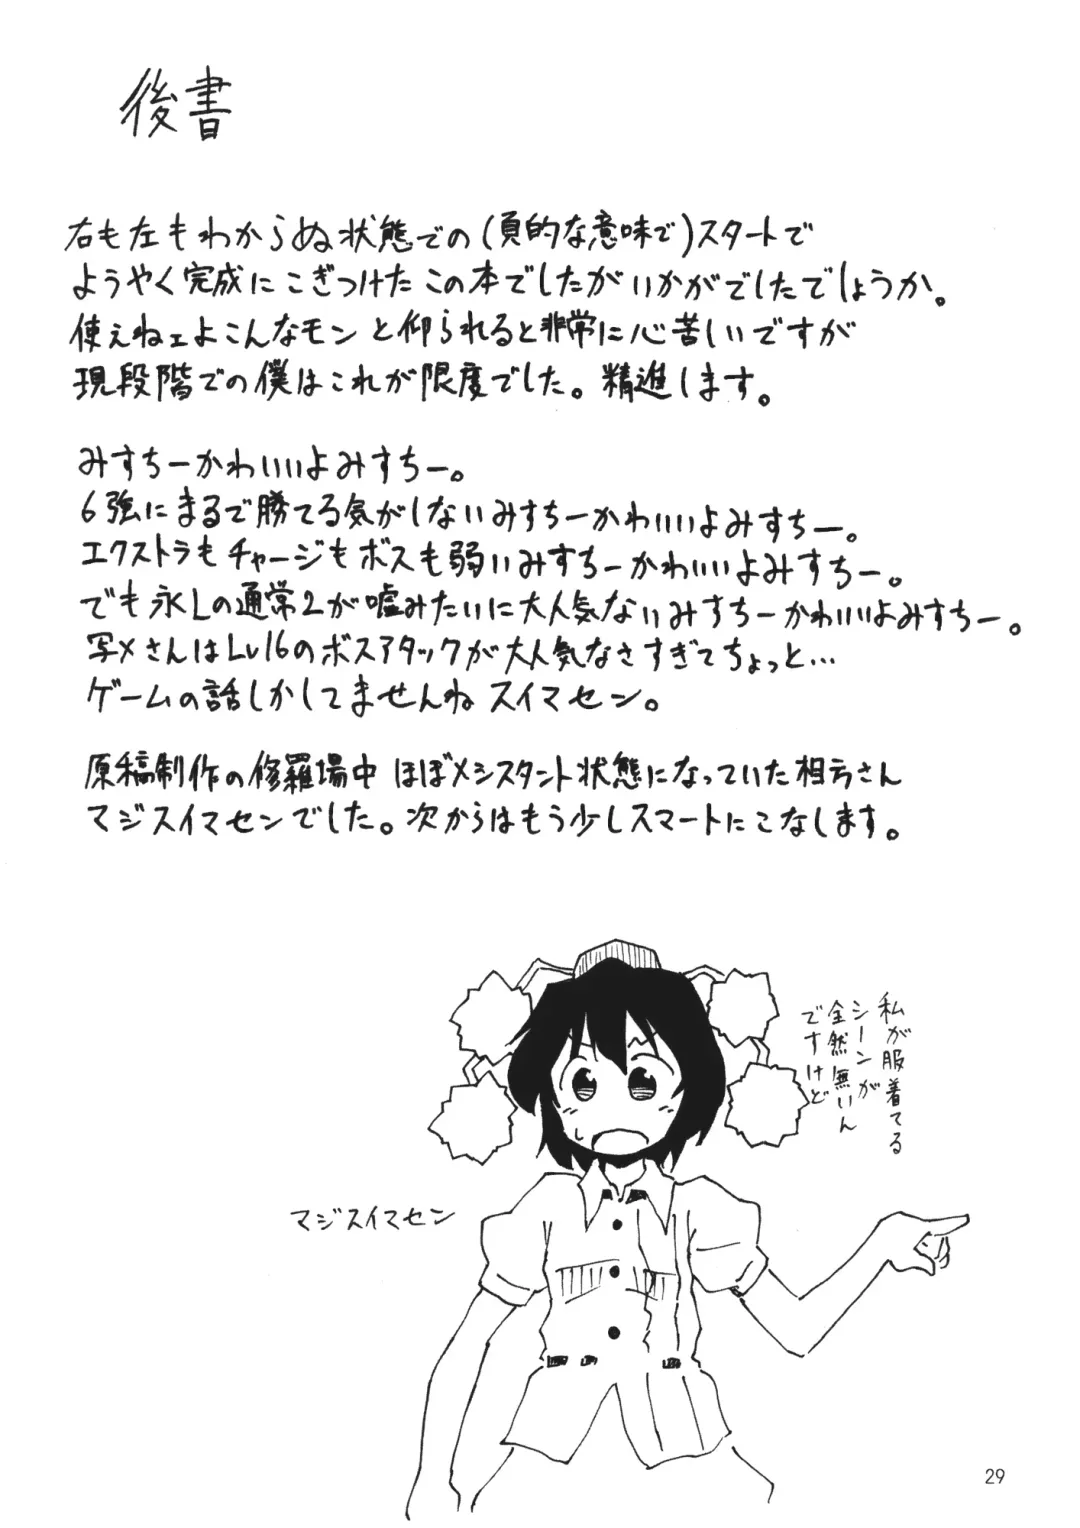 後書
右も左もわからぬ状態での(頁的な意味で)スタートで
ようやく完成にこぎつけたこの本でしたがいかがでしたでしょうか。
使えねェよこんなモンと仰られると非常に心苦しいですが
現段階での僕はこれが限度でした。精進します。
みすちーかわいいよみすちー。
6強にまるで勝てる気がしないみすちーかわいいよみすちー。
エクストラもチャージもボスも弱いみすちーかわいいよみすちー。
でも永Lの通常2が嘘みたいに大人気ないみすちーかわいいよみすちー。
写メさんはLv16のボスアタックが大人気なさすぎてちょっと…
ゲームの話しかしてませんねスイマセン。
原稿制作の修羅場中ほぼメシスタント状態になっていた相方さん
マジスイマセンでした。次からはもう少しスマートにこなします。
私が服着てる
シーンが
全然無いん
ですけど
マジスイマセン
29